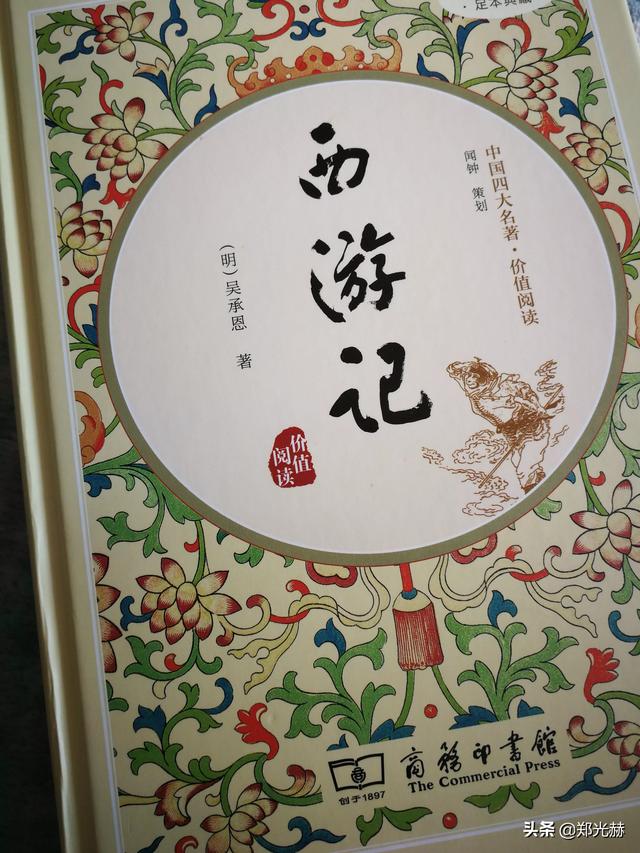 ·足本典藏
中国四大名著·价值阅读
闻钟 策划
西游记
(明)吴承恩 著
价值
阅读
商务印书馆
The Commercial Press
创于1897
头条 @郑光赫